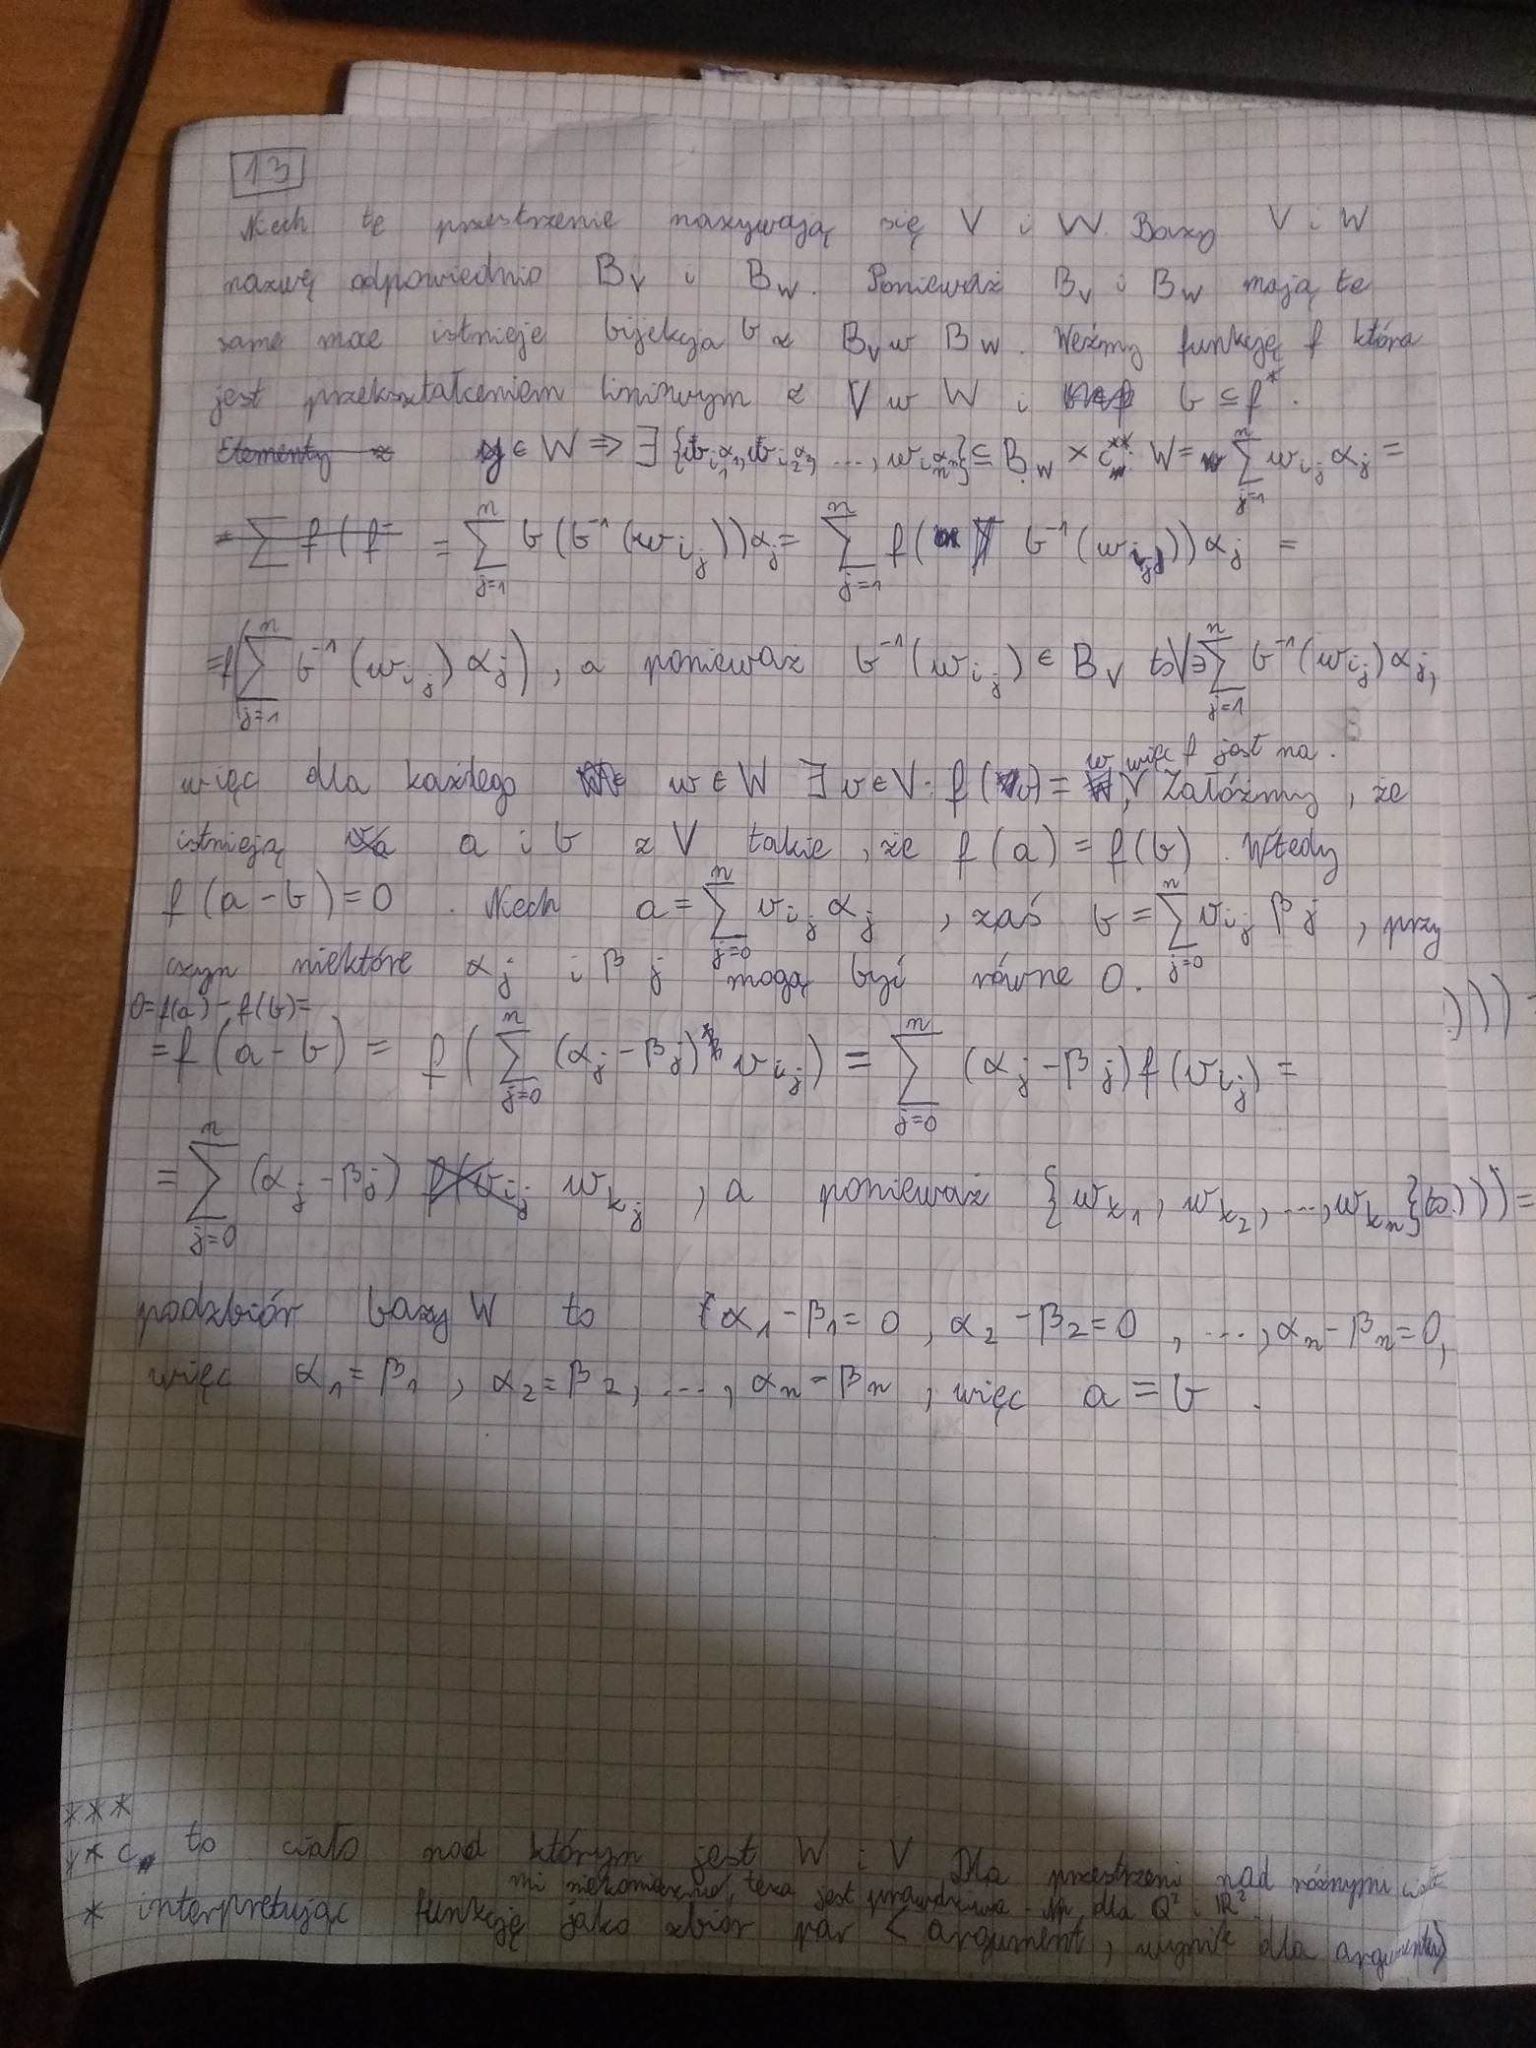 13
Niech te przestrzenie nazywają się V i W. Bazy V i W
nazwę odpowiednio B_V i B_W. Ponieważ B_V i B_W mają te
same moce istnieje bijekcja b z B_V w B_W. Weźmy funkcję f która
jest przekształceniem liniowym z V w W i b ⊆ f*.
Elementy z w ∈ W ⇒ ∃ {w_{i_1}α_1, w_{i_2}α_2, ..., w_{i_n}α_n} ⊆ B_W × C** W = ∑_{j=1}^{n} w_{i_j} α_j =
= ∑_{j=1}^{n} b(b^{-1}(w_{i_j}))α_j = ∑_{j=1}^{n} f(b^{-1}(w_{i_j}))α_j =
= f(∑_{j=1}^{n} b^{-1}(w_{i_j}) α_j), a ponieważ b^{-1}(w_{i_j}) ∈ B_V to V∋∑_{j=1}^{n} b^{-1}(w_{i_j}) α_j,
w więc f jest na.
więc dla każdego w ∈ W ∃ v ∈ V: f(v) = , Załóżmy, że
istnieją a i b z V takie, że f(a) = f(b). Wtedy
f(a-b) = 0. Niech a = ∑_{j=0}^{n} v_{i_j} α_j, zaś b = ∑_{j=0}^{n} v_{i_j} β_j, przy
czym niektóre α_j i β_j mogą być równe 0.
0 = f(a) - f(b) =
= f(a-b) = f(∑_{j=0}^{n} (α_j - β_j) v_{i_j}) = ∑_{j=0}^{n} (α_j - β_j) f(v_{i_j}) =
= ∑_{j=0}^{n} (α_j - β_j) w_{k_j}, a ponieważ {w_{k_1}, w_{k_2}, ..., w_{k_n}} to
podzbiór bazy W to α_1 - β_1 = 0, α_2 - β_2 = 0, ..., α_n - β_n = 0,
więc α_1 = β_1, α_2 = β_2, ..., α_n = β_n, więc a = b.
***
** C to ciało nad którym jest W i V Dla przestrzeni nad różnymi
niekoniecznie, teza jest prawdziwa. Np. dla Q² i R².
* interpretując funkcję jako zbiór par < argument, wynik dla argumentu>